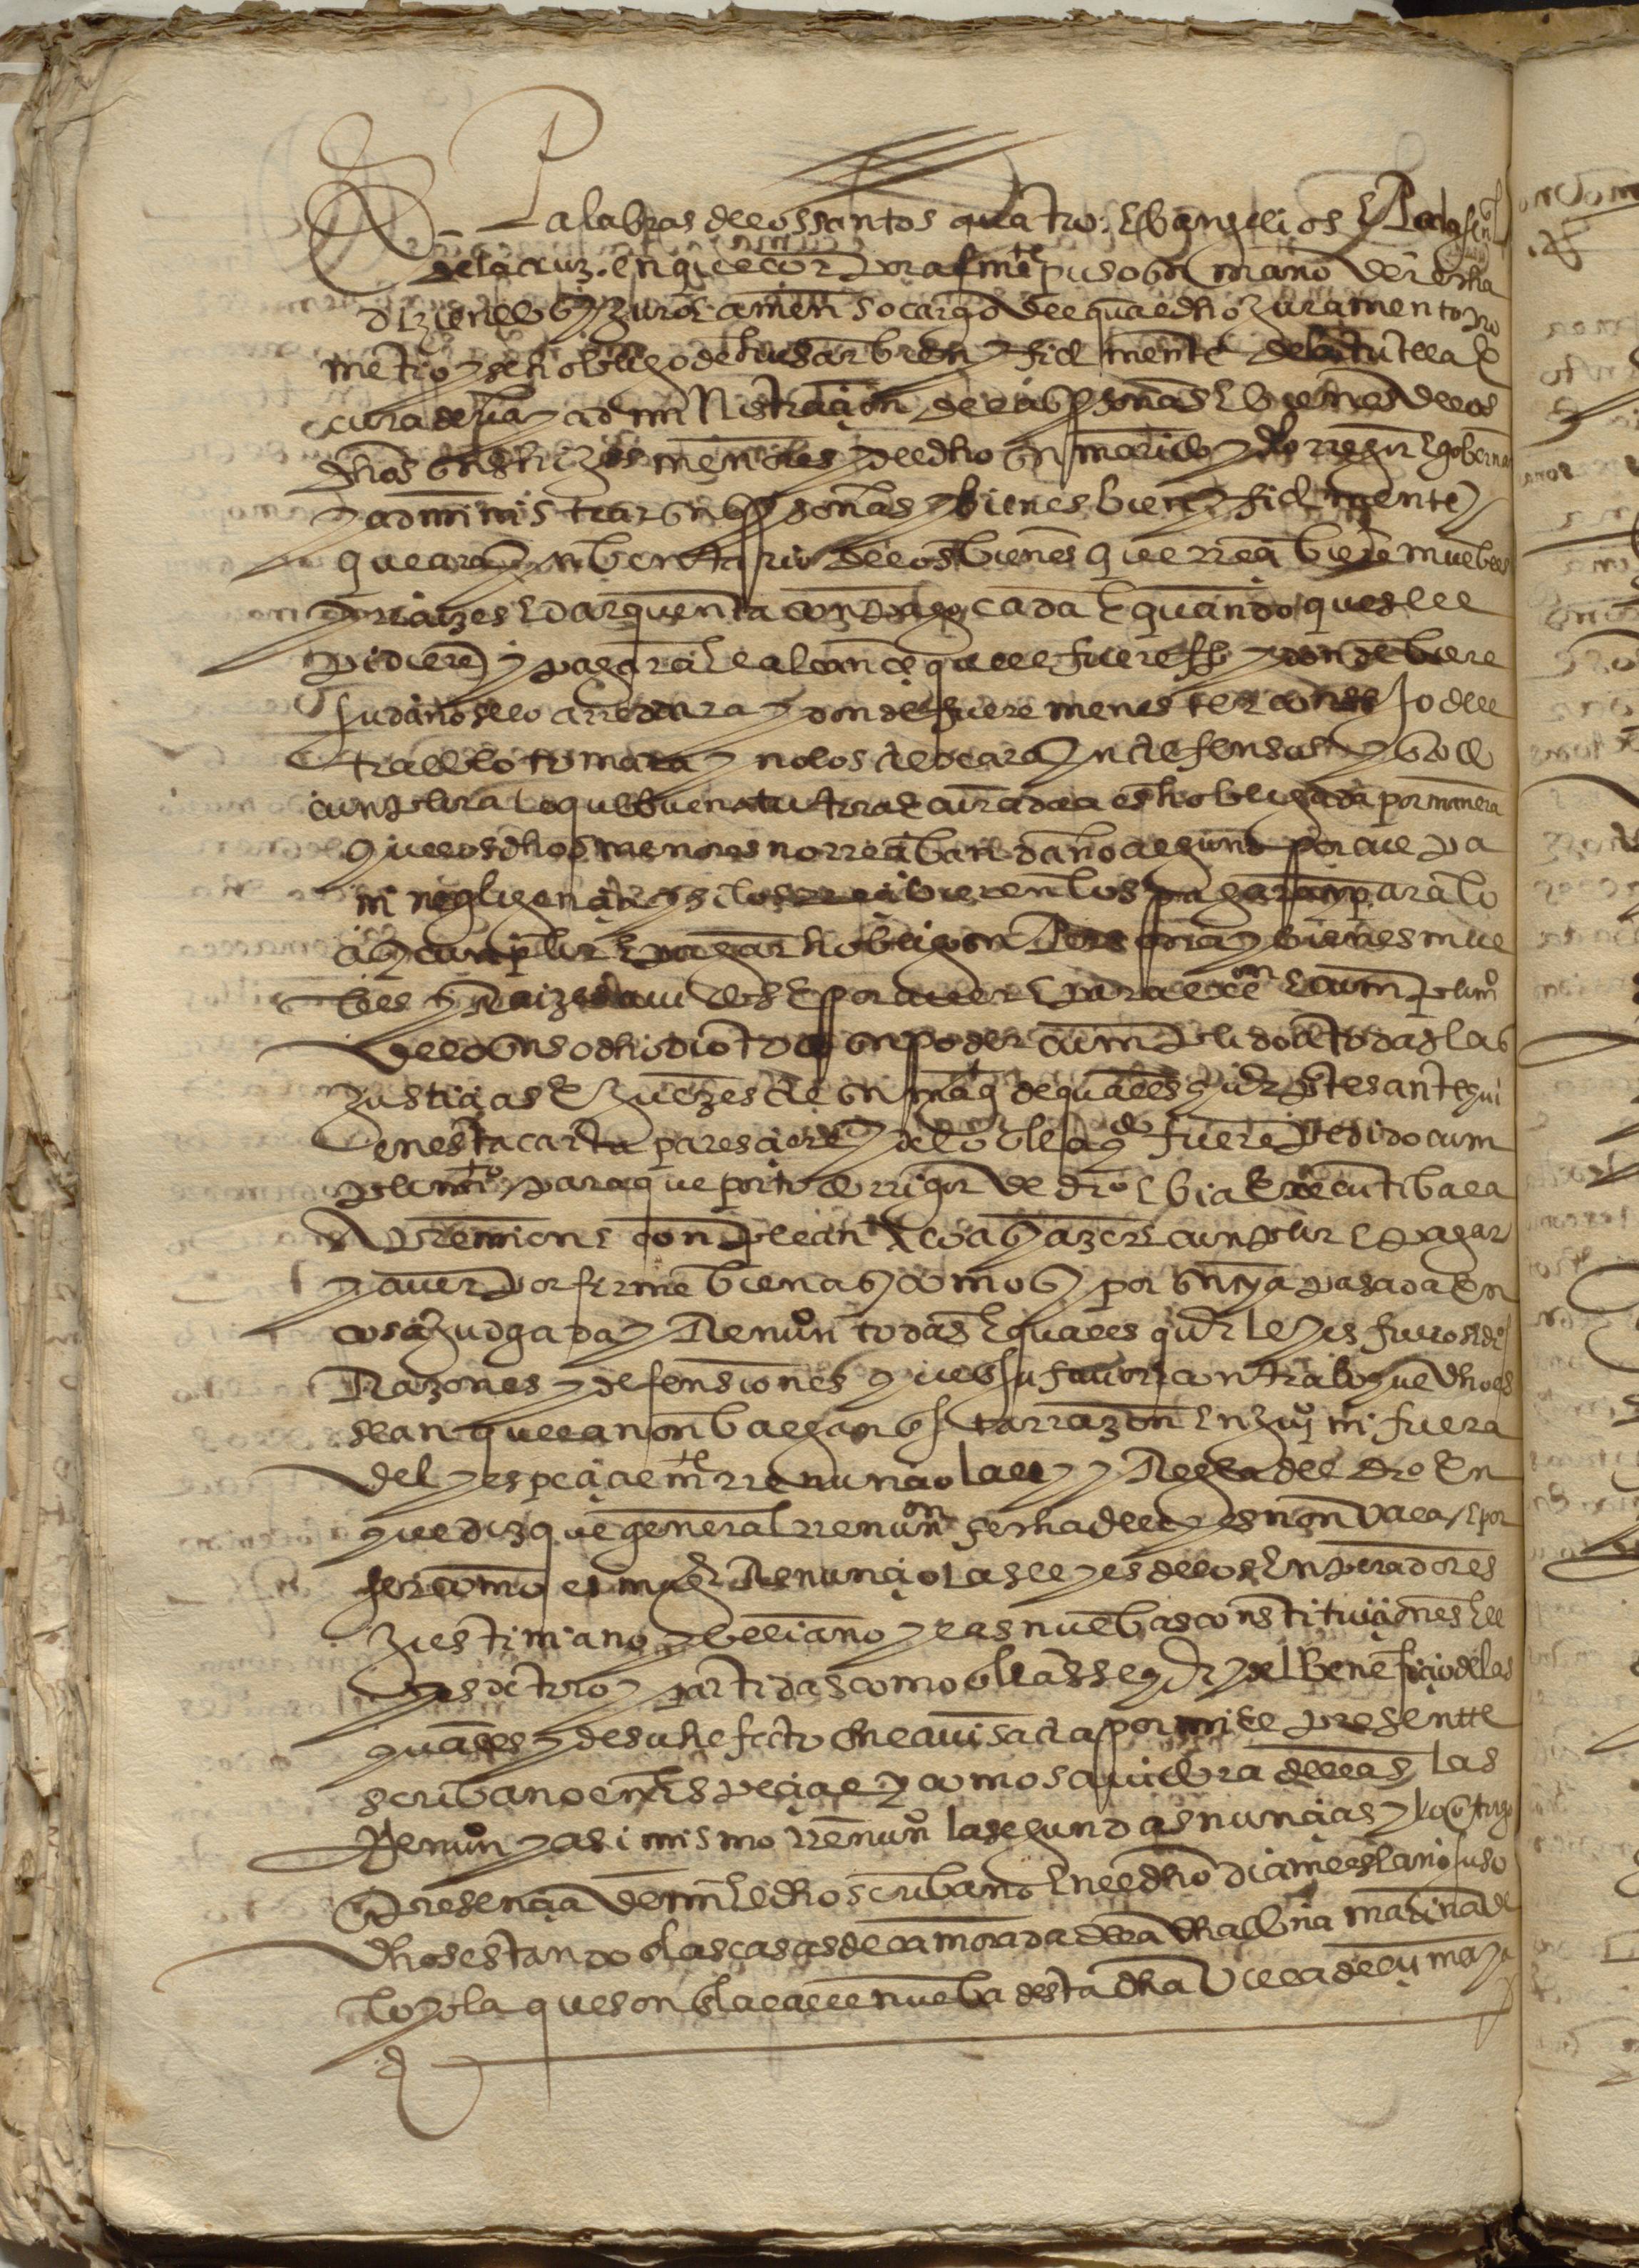 Palabras de los santos quatro ebangelios e la señal
de la cruz en que corporalmte puso su mano derecha
diziendo si juro e amen so cargo del qual dho juramento pro
metio y se hobligo de husar bien y fielmente de la tutela e
curaderia y administraçion de las psonas e bienes de los
dhos sus hijos menores y del dho su marido y de rregir e gobernar
y administrar sus psonas y bienes bien y fielmente y
que ara ynbentario de los bienes que rreçibiere muebles
y rraizes e dar quenta con pago cada e quando que se le
pidiere y pagara el alcançe que le fuere fho y donde biere
su daño se lo arredrara y donde fuere menester consejo de le
trado lo tomara y no los dexara yndefensos y todo
cunplira lo que buena tutora e curadora es hobligada por manera
que los dhos menores no rreçiban daño alguno por culpa
ni negligençia y si los rreçibieren los pagara y para lo
asy cunplir e pagar hobligo su persona y bienes mue
bles y rraizes auidos e por auer e para la exon e cumplimo
de lo suso dho dio todo su poder cumplido a todas las
justiçias e juezes de su magt de quales quier ptes ante qui
en esta carta paresçiere y de lo en ella qdo fuere pedido cum
plimto para que por todo rrigor de dro e bia executiba la
apremien e conpelan a lo asy azer e cunplir e pagar
y auer por firme bien asy como sy por sentençia pasada en
cosa juzgada y renunº todas e quales quier leyes fueros e dros
razones y defensiones que en su fauor e contra lo que dho es
sean que la non balgan en esta rrazon en juiº ni fuera
del y espeçialmte rrenunçio la ley y regla del dro en
que diz que general rrenunon fecha de leyes non vala / e por
ser como es muger renunçio las leyes de los enperadores
justiniano y beliano y las nuebas constituiçiones e le
yes de toro y partidas como en ellas se qe y del benefiçio de las
quales y de su hefecto fue auisada por mi el presentte
scribano en espeçial y como sauidora dellas las
renunº y asi mismo rrenunº la segundas nunçias y lo otorgo
presençia de mi el dho scribano en el dho dia mes e año suso
dhos estando en las casas de la morada de la dha doña marina de
loyola que son en la calle nueba desta dha villa de çumaya